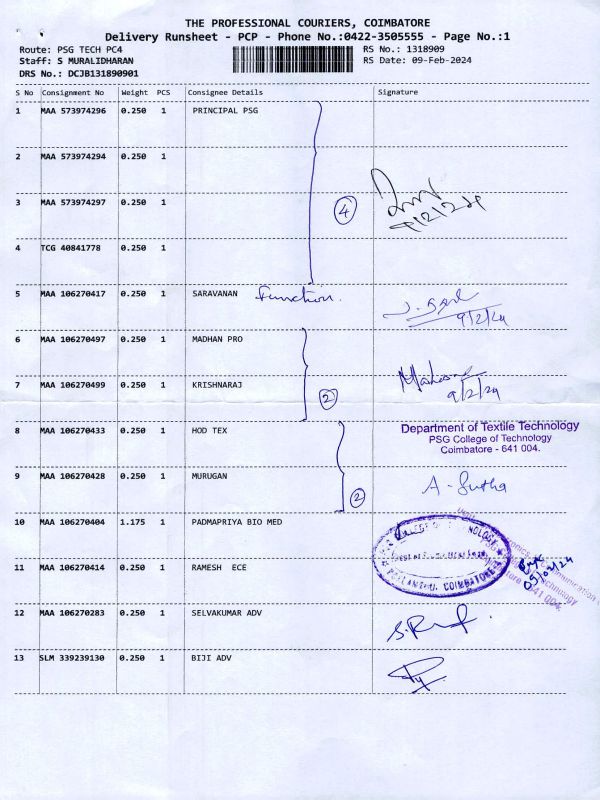 THE PROFESSIONAL COURIERS, COIMBATORE
Delivery Runsheet - PCP - Phone No.:0422-3505555 - Page No.:1
Route: PSG TECH PC4
RS No.: 1318909
Staff: S MURALIDHARAN
RS Date: 09-Feb-2024
DRS No.: DCJB131890901
S No Consignment No Weight PCS Consignee Details Signature
1 MAA 573974296 0.250 1 PRINCIPAL PSG
2 MAA 573974294 0.250 1
3 MAA 573974297 0.250 1
4
9/2/24
4 TCG 40841778 0.250 1
5 MAA 106270417 0.250 1 SARAVANAN Function.
9/2/24
6 MAA 106270497 0.250 1 MADHAN PRO
7 MAA 106270499 0.250 1 KRISHNARAJ
2
9/2/24
8 MAA 106270433 0.250 1 HOD TEX
Department of Textile Technology
PSG College of Technology
Coimbatore - 641 004.
9 MAA 106270428 0.250 1 MURUGAN
2
A. Sutha
10 MAA 106270404 1.175 1 PADMAPRIYA BIO MED
11 MAA 106270414 0.250 1 RAMESH ECE
COIMBATORE
09/02/24
641 004.
12 MAA 106270283 0.250 1 SELVAKUMAR ADV
13 SLM 339239130 0.250 1 BIJI ADV